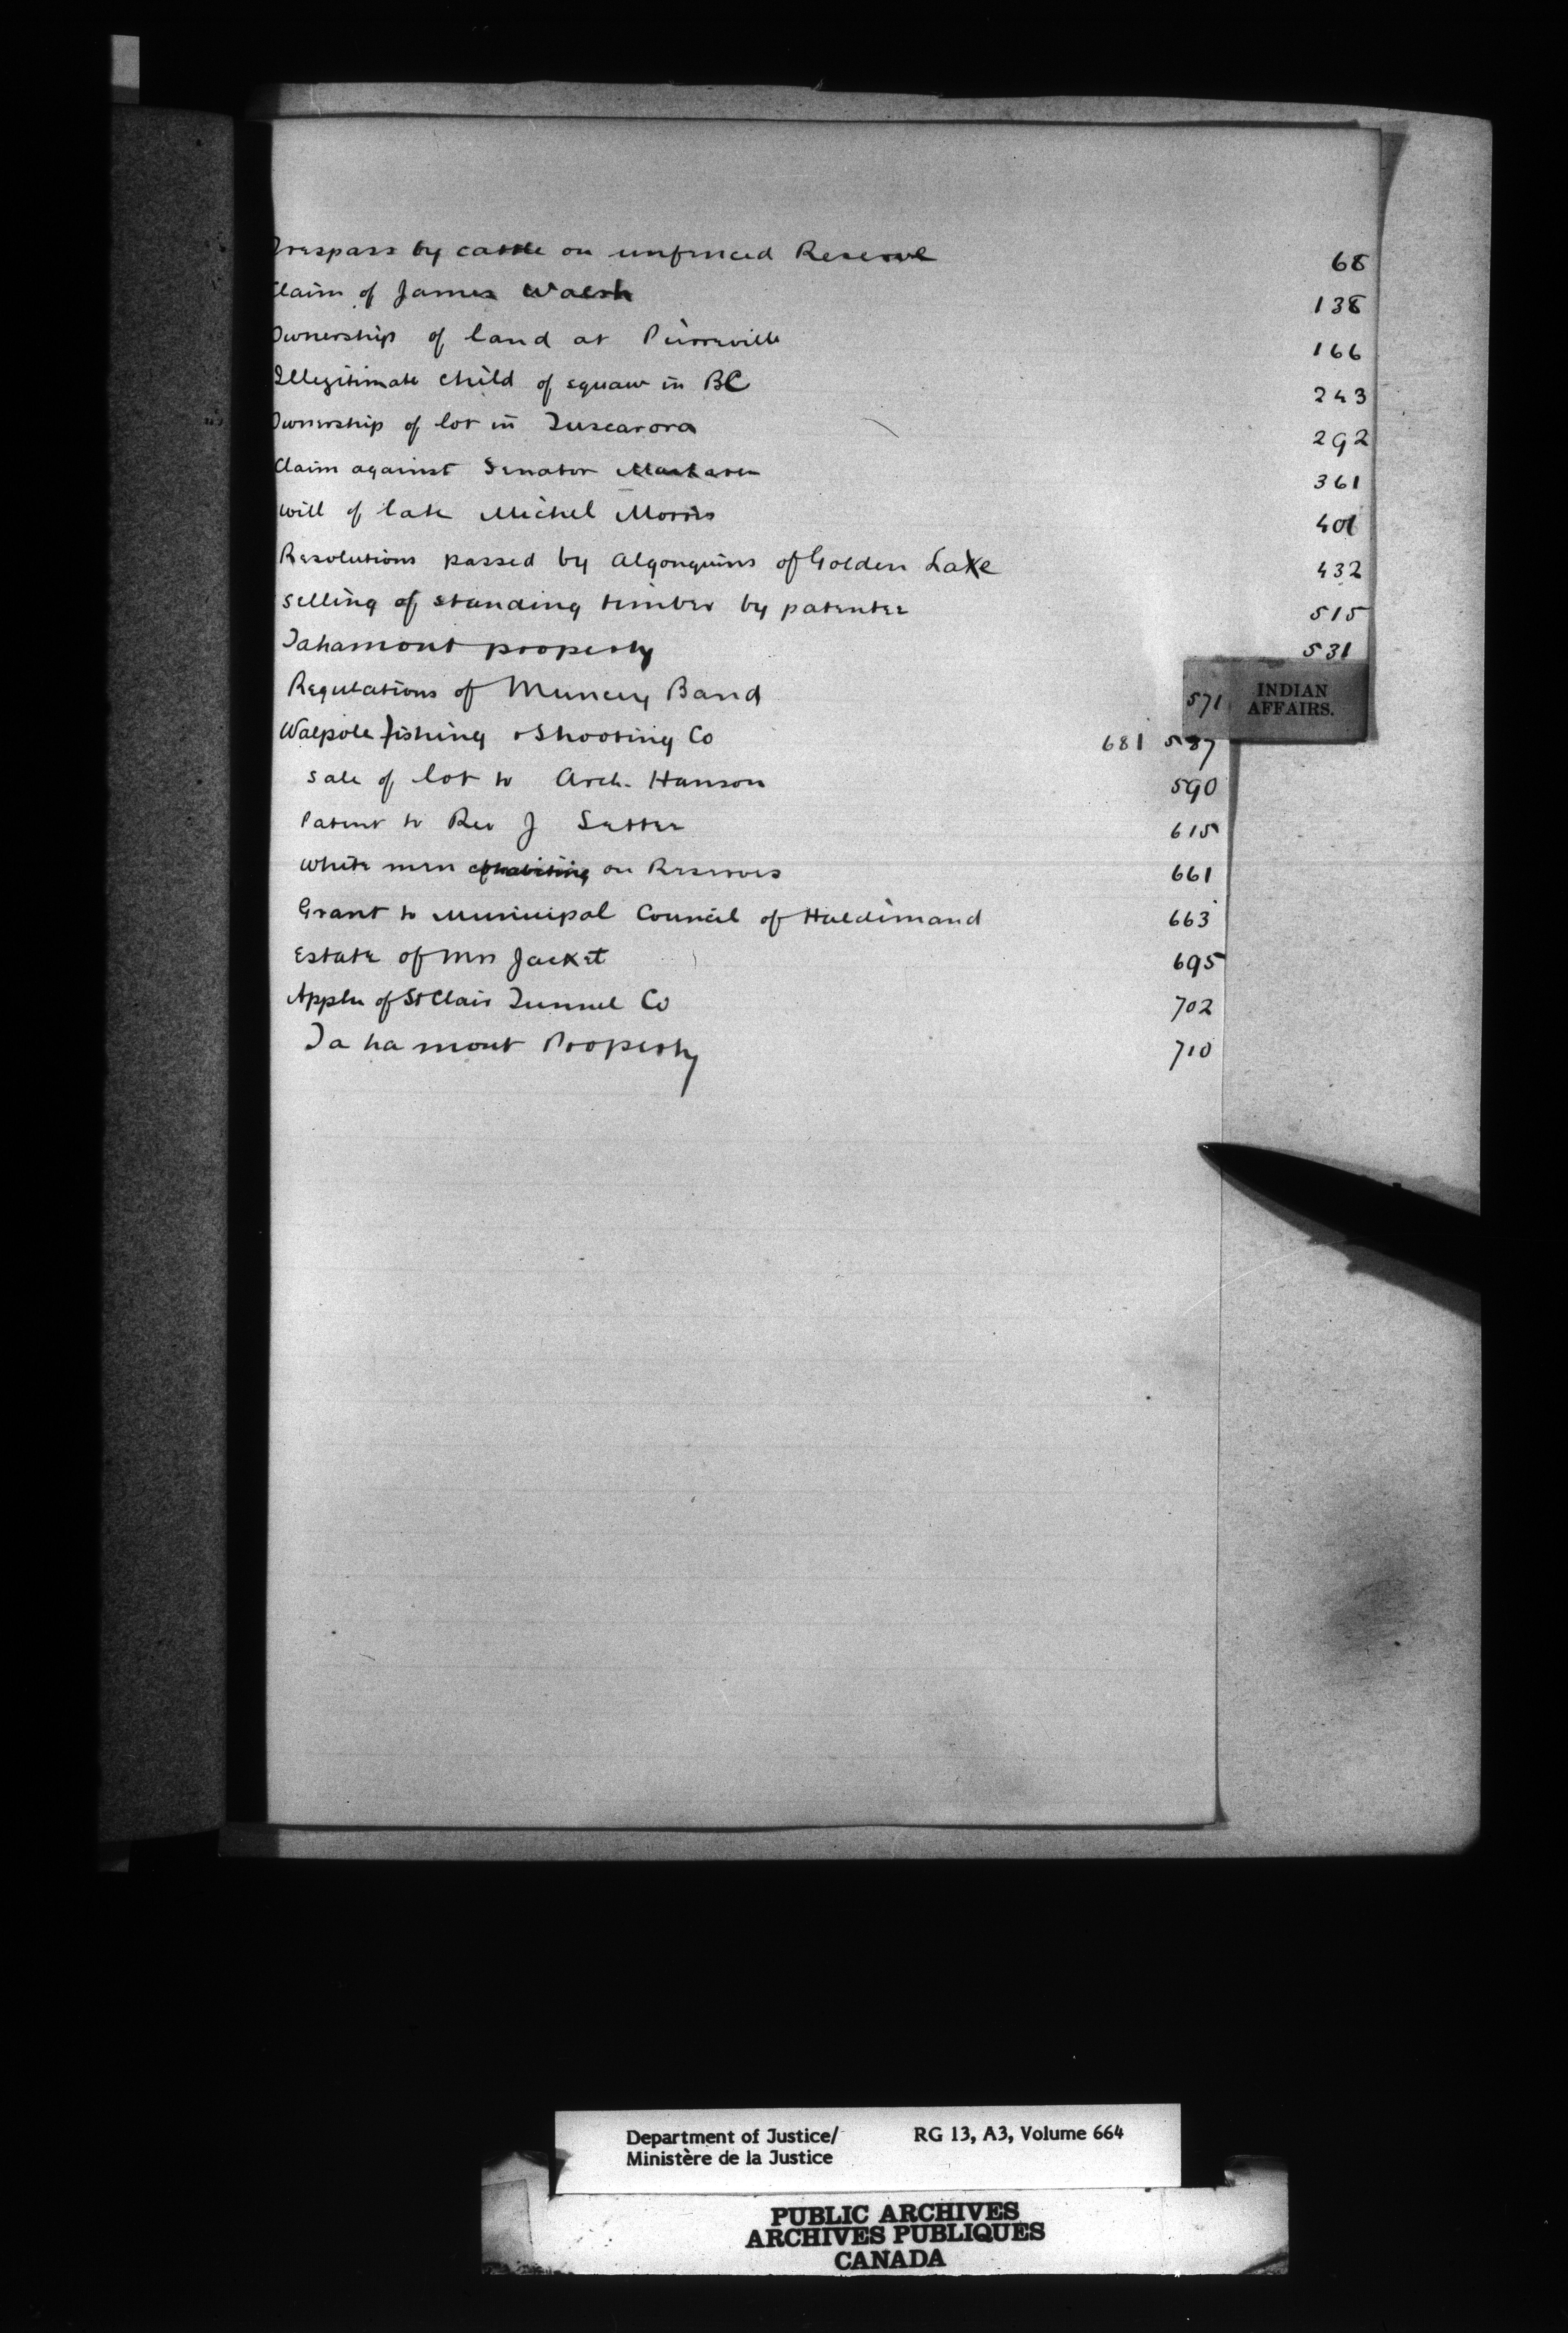 Trespass by cattle on unfenced Reserve 68
Claim of James Walsh 138
Ownership of land at Pierreville 166
Illegitimate child of squaw in BC 243
Ownership of lot in Tuscarora 292
Claim against Senator 361
Will of late Michel Morris 401
Resolutions passed by Algonquins of Golden Lake 432
Selling of standing timber by patentee 515
Tahamont property 531
Regulations of Muncey Band 571
INDIAN
AFFAIRS.
Walpole fishing & Shooting Co 681 587
Sale of lot to Arch. Hanson 590
Patent to Rev J 615
White men cohabiting on Reserves 661
Grant to Municipal Council of Haldimand 663
Estate of Mrs Jacket 695
Appln of St Clair Tunnel Co 702
Tahamont Property 710
Department of Justice/ RG 13, A3, Volume 664
Ministère de la Justice
PUBLIC ARCHIVES
ARCHIVES PUBLIQUES
CANADA